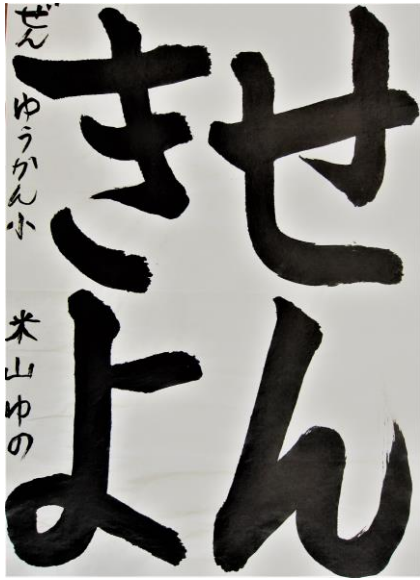 せん
きよ
ぜん ゆうかん小 米山ゆの